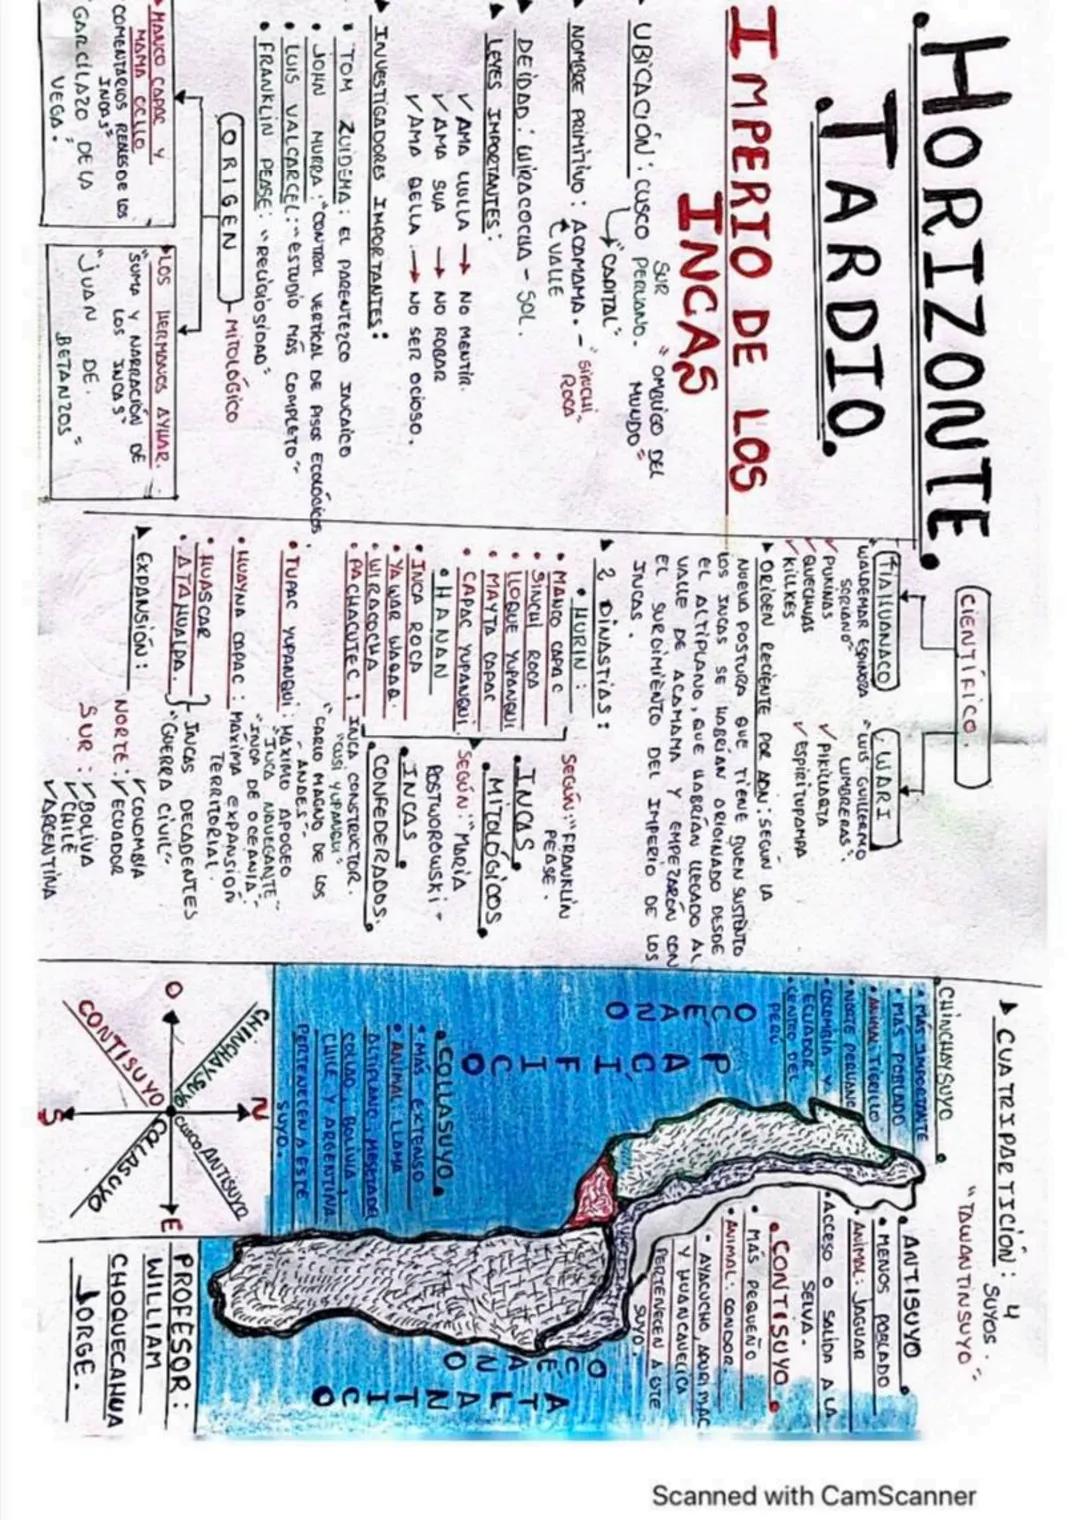 HORIZONTE
TARDIO.
IMPERIO DE LOS
INCAS
UBICACIÓN: CUSCO SUR PERUANO. "OMBLIGO DEL
MUNDO"
"CAPITAL"
NOMBRE PRIMITIVO: ACAMAMA.- "SINCHI
ROCA
VALLE
DEIDAD: WIRACOCHA - SOL.
LEYES IMPORTANTES:
✓ AMA LLULLA → NO MENTIR.
✓ AMA SUA → NO ROBAR
✓ AMA QELLA → NO SER OCIOSO.
INVESTIGADORES IMPORTANTES:
• TOM ZUIDEMA: EL PARENTEZCO INCAICO
• JOHN MURRA: "CONTROL VERTICAL DE PISOS ECOLÓGICOS
• LUIS VALCARCEL: "ESTUDIO MÁS COMPLETO"
• FRANKLIN PEASE: "RELIGIOSIDAD"
ORIGEN - MITOLÓGICO
MANCO CAPAC Y
MAMA OCLLO
COMENTARIOS REALES DE LOS
INCAS"
GARCILAZO DE LA
VEGA.
• LOS HERMANOS AYHAR.
"SUMA Y NARRACIÓN DE
LOS INCAS"
"JUAN DE
BETANZOS"
CIENTÍFICO.
TIAHUANACO
"WALDEMAR ESPINOZA
SORIANO"
✓ PUKINAS
✓ QUECHUAS
✓ KILLKES
WARI
"LUIS GUILLERMO
LUMBRERAS".
✓ PIKILLAQTA
✓ ESPIRITUPAMPA
ORIGEN RECIENTE POR ADN: SEGÚN LA
NUEVA POSTURA QUE TIENE BUEN SUSTENTO
LOS INCAS SE HABRÍAN ORIGINADO DESDE
EL ALTIPLANO, QUE HABRÍAN LLEGADO AL
VALLE DE ACAMAMA Y EMPEZARÓN CON
EL SURGIMIENTO DEL IMPERIO DE LOS
INCAS.
2 DINASTIAS:
• HURIN:
• MANCO CAPAC
• SINCHI ROCA
• LLOQUE YUPANQUI
• MAYTA CAPAC
• CAPAC YUPANQUI.
SEGÚN: "FRANKLIN
PEASE.
• INCAS
MITOLÓGICOS.
• HANAN
• INCA ROCA
• YAWAR WAQAQ.
• WIRACOCHA
• PACHACUTEC: INCA CONSTRUCTOR.
"CUSI YUPANQUI"
"CARLO MAGNO DE LOS
ANDES"
SEGÚN: "MARÍA
ROSTWOROWSKI"
• INCAS
CONFEDERADOS.
• TUPAC YUPANQUI: MÁXIMO APOGEO
"INCA NAVEGANTE"
"INCA DE OCEANÍA"
• HUAYNA CAPAC: MÁXIMA EXPANSIÓN
TERRITORIAL.
• HUASCAR
• ATAHUALPA.
INCAS DECADENTES
"GUERRA CIVIL"
EXPANSIÓN:
NORTE: ✓ COLOMBIA
✓ ECUADOR
SUR: ✓ BOLIVA
✓ CHILE
✓ ARGENTINA
CUATRIPARTICIÓN: 4
SUYOS.
"TAWANTINSUYO"
CHINCHAYSUYO
• MÁS IMPORTANTE
• MÁS POBLADO
• ANIMAL: TIGRILLO
• NORTE PERUANO
• COLOMBIA Y
ECUADOR
• CENTRO DEL
PERÚ
• ANTISUYO
• MENOS POBLADO
• ANIMAL: JAGUAR
• ACCESO O SALIDA A LA
SELVA.
• CONTISUYO
• MÁS PEQUEÑO
• ANIMAL: CONDOR.
• AYACUCHO, APURIMAC
Y HUANCAVELICA
PERTENECEN A ESTE
SUYO.
OCEANO
PACIFICO
• COLLASUYO
• MÁS EXTENSO
• ANIMAL: LLAMA
COLLAO, BOLIVIA,
CHILE Y ARGENTINA
PERTENECEN A ESTE
SUYO.
OCEANO
ATLANTICO
N
CHINCHAYSUYO
ANTISUYO
O
CUSCO
E
CONTISUYO
COLLASUYO
S
PROFESOR:
WILLIAM
CHOQUECAHUA
JORGE.
Scanned with CamScanner